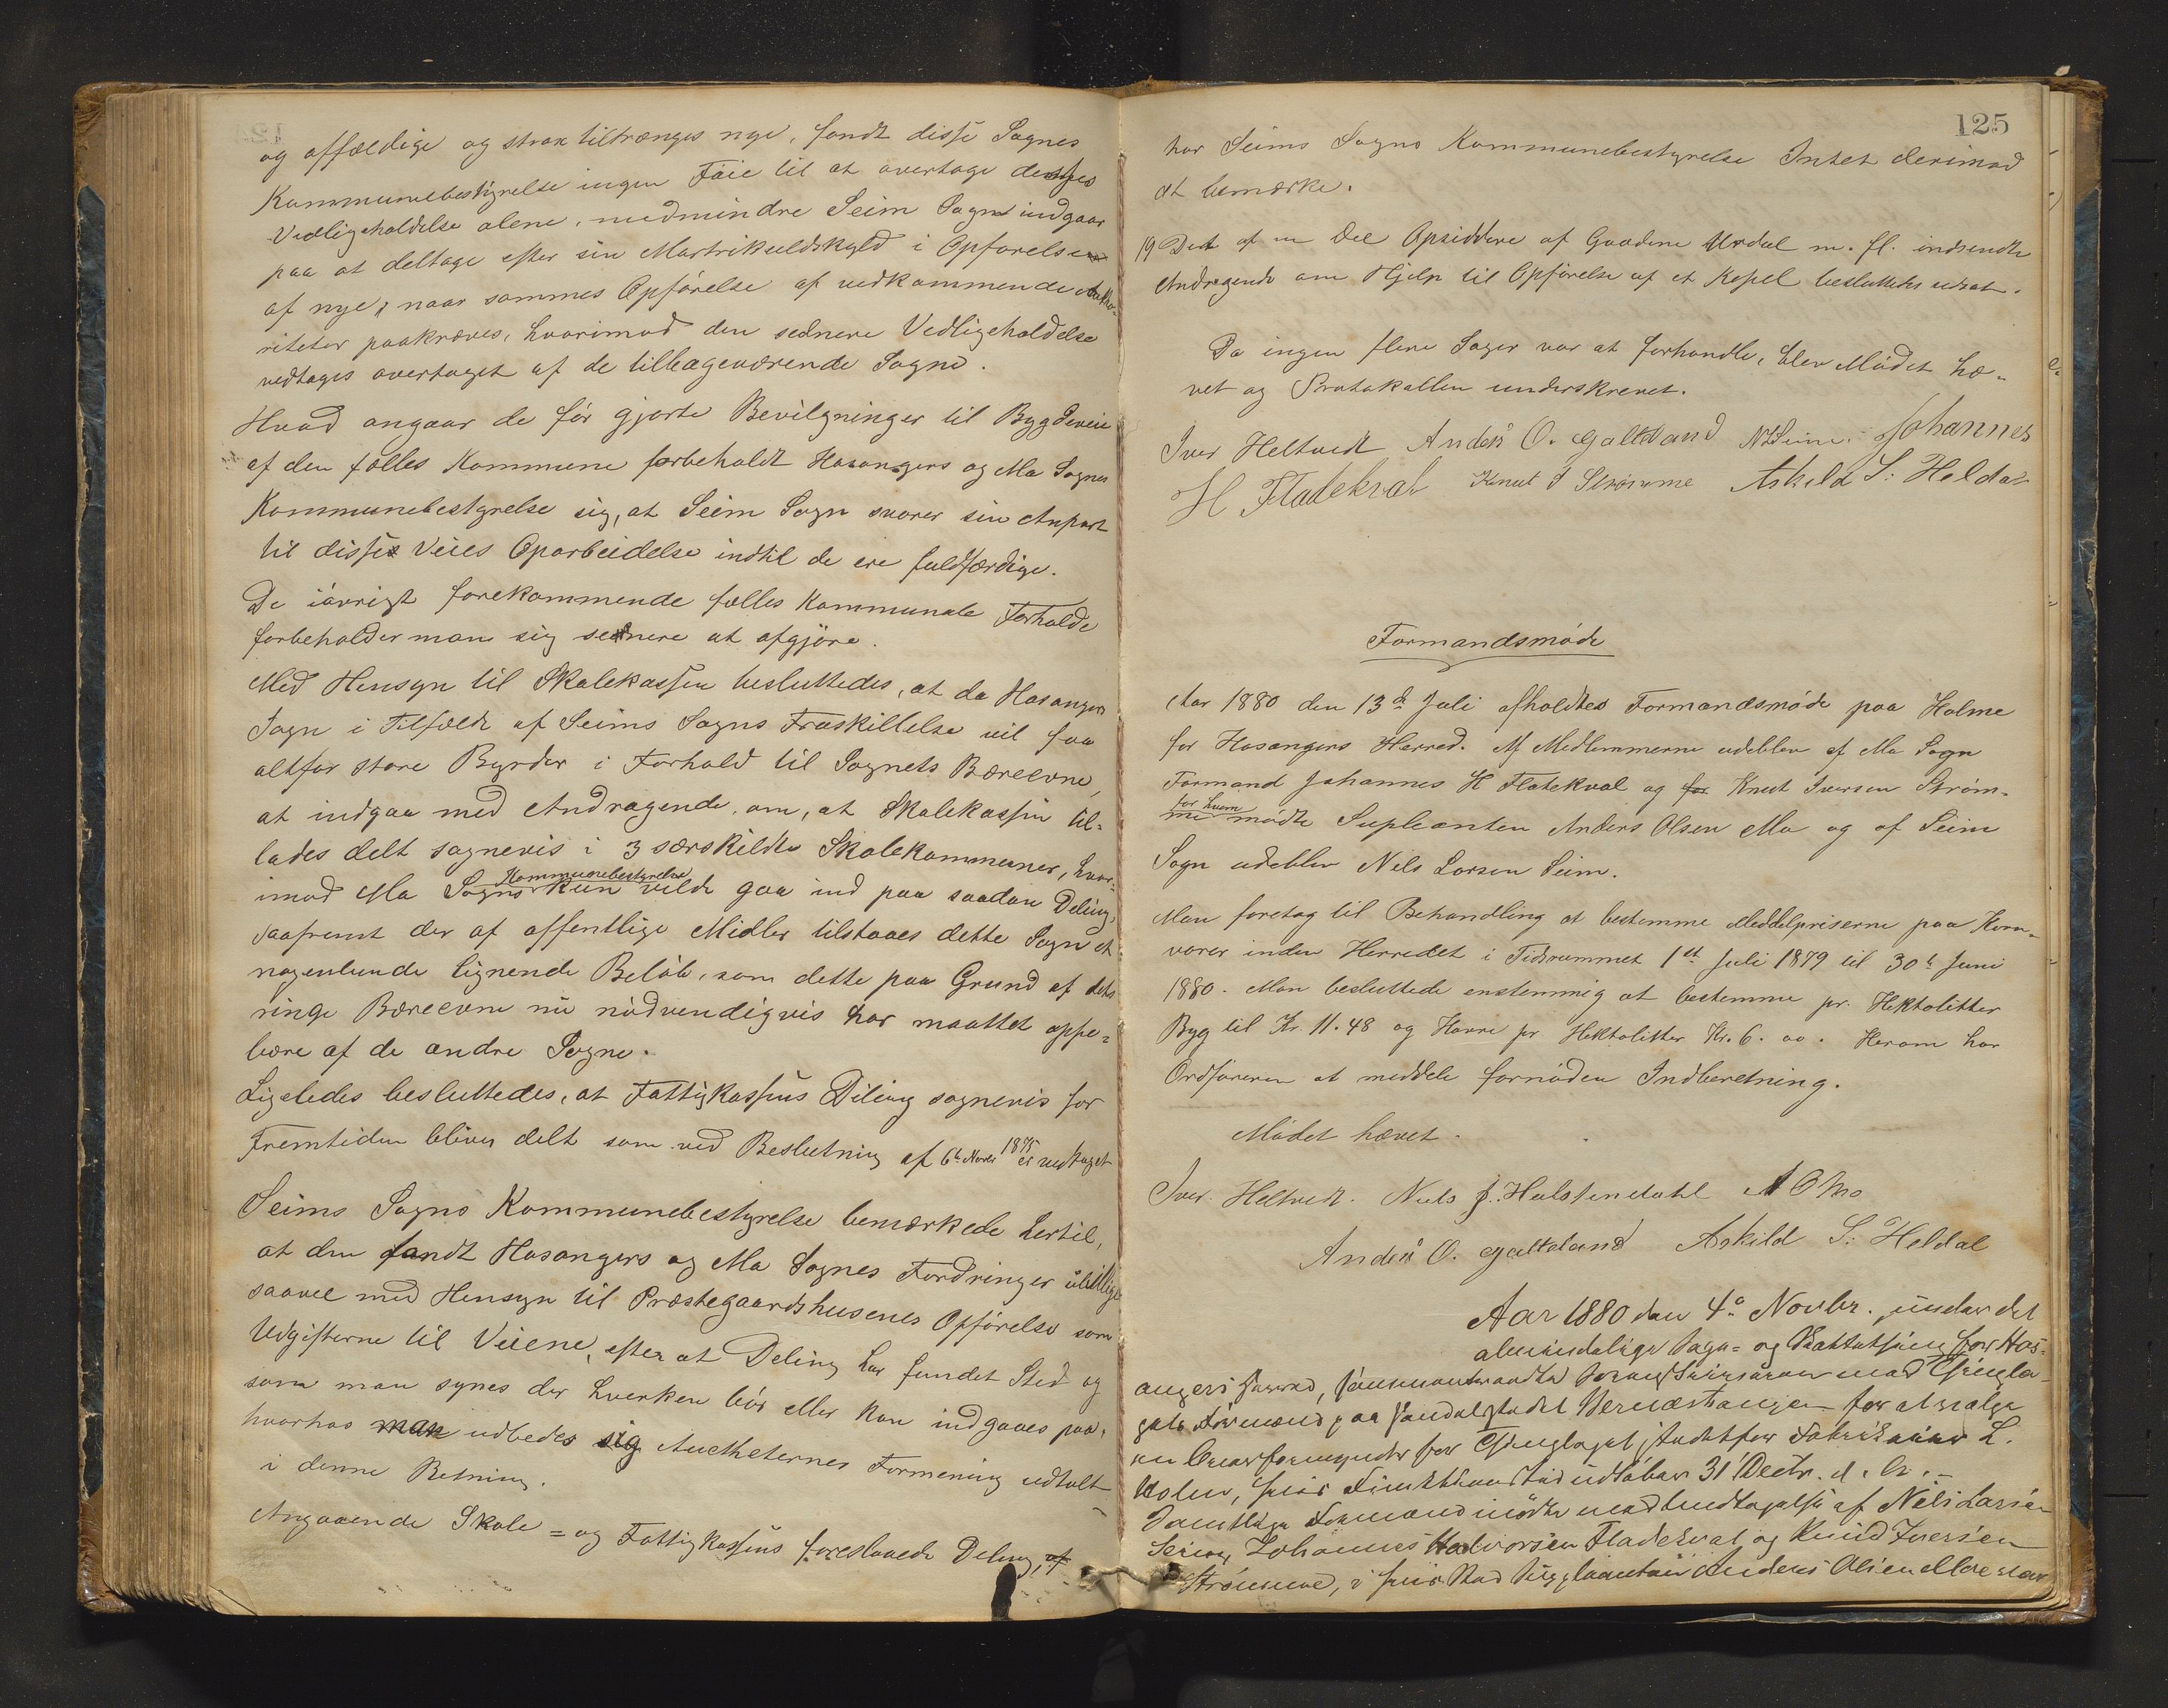 og affældige og strax tiltrænges nye, fandt disse Sognes
Kommunebestyrelse ingen Föie til at overtage dessses
Vedligeholdelse alene, medmindre Seim Sogn indgaar
paa at deltage efter sin Martrikulskyld i Opförelsen
af nye, naar sammes Opförelse af vedkommende Autho-
riteter paakræves, hvorimod den sednere Vedligeholdelse
vedtages overtaget af de tilbageværende Sogne.
Hvad angaar de før gjorte Bevilgninger til Bygdeveie
af den fælles Kommune forbeholdt Hosangers og Mo Sognes
Kommunebestyrelse sig, at Seim Sogn svarer sin Anpart
til disses Veies Oparbeidelse indtil de ere fuldfærdige.
De iövrigt forekommende fælles Kommunale Forholde
forbeholder man sig sednere at afgjöre.
Med Hensyn til Skolekassen besluttedes, at da Hosangers
Sogn i Tilfælde af Seims Sogns Fraskillelse vil faa
altfor store Byrder i Forhold til Sognets Bæreevne,
at indgaa med Andragende om, at Skolekassen til-
lades delt sognevis i 3 særskildte Skolekommuner, hvor-
imod Mo Sogns Kommunebestyrelse kun vilde gaa ind paa saadan Deling,
saafremt der af offentlige Midler tilstaaes dette Sogn et
nogenlunde lignende Belöb, som dette paa Grund af dets
ringe Bæreevne nu nödvendigvis har maattet oppe-
bære af de andre Sogne.
Ligeledes besluttedes, at Fattigkassens Deling sognevis for
Fremtiden bliver delt som ved Beslutning af 6te Novbr 1875 er vedtaget
Seims Sogns Kommunebestyrelse bemærkede hertil,
at den fandt Hosangers og Mo Sognes Fordringer ubillige
saavel med Hensyn til Præstegaardshusenes Opförelse som
Udgifterne til Veiene, efter at Deling har fundet Sted og
som man synes der hverken bör eller kan indgaaes paa,
hvorhos man udbedes sig Auctheternes Formening udtalt
i denne Retning.
Angaaende Skole- og Fattigkassens foreslaaede Deling, af
125
har Seims Sogns Kommunebestyrelse Intet derimod
at bemærke.
19 Det af en Del Opsiddere af Gaardene Urdal m. fl. indsendte
Andragende om Hjelp til Opförelse af et Kapel besluttedes udsat.
Da ingen flere Sager var at forhandle, blev Mödet hæ-
vet og Protokollen underskrevet.
Iver Heltvedt Anders O. Galteland N L Seim. Johannes
H Fladekval Knut I Strømme Askild S: Heldal
Formandsmöde
Aar 1880 den 13de Juli afholdtes Formandsmöde paa Holme
for Hosangers Herred. Af Medlemmerne udeblev af Mo Sogn
Formand Johannes H Flatekval og for Knut Iversen Ström-
me for hvem mödte Supleanten Anders Olsen Mo og af Seim
Sogn udeblev Nels Larsen Seim.
Man foretog til Behandling at bestemme Meddelpriserne paa Korn-
varer inden Herredet i Tidsrummet 1st Juli 1879 til 30te Juni
1880. Man besluttede enstemmig at bestemme pr. Hektolitter
Byg til Kr. 11.48 og Havre pr Hektolitter Kr. 6.00. Herom har
Ordföreren at meddele fornöden Indberetning.
Mödet hævet.
Iver Heltvedt. Niels J. Halstendahl A O Mo
Anders O. Galteland Askild S: Heldal
Aar 1880 den 4de Novbr. under det
almindelige Sage- og Skattething for Hos-
angers Herred, sammentraadte Sorenskriveren med Thingla-
gets Formænd paa Thingstedet Vernæstangen for at vælge
en Overformynder for Thinglaget istedetfor
Holm, hvis Funktionstid udlöber 31 Decbr. d. A.
Samtlige Formænd mödte med Undtagelse af Nels Larsen
Seim, Johannes Halvorsen Fladekval og Knud Iversen
Strömme, i hvis Sted Suppleanten Anders Olsen Moe var